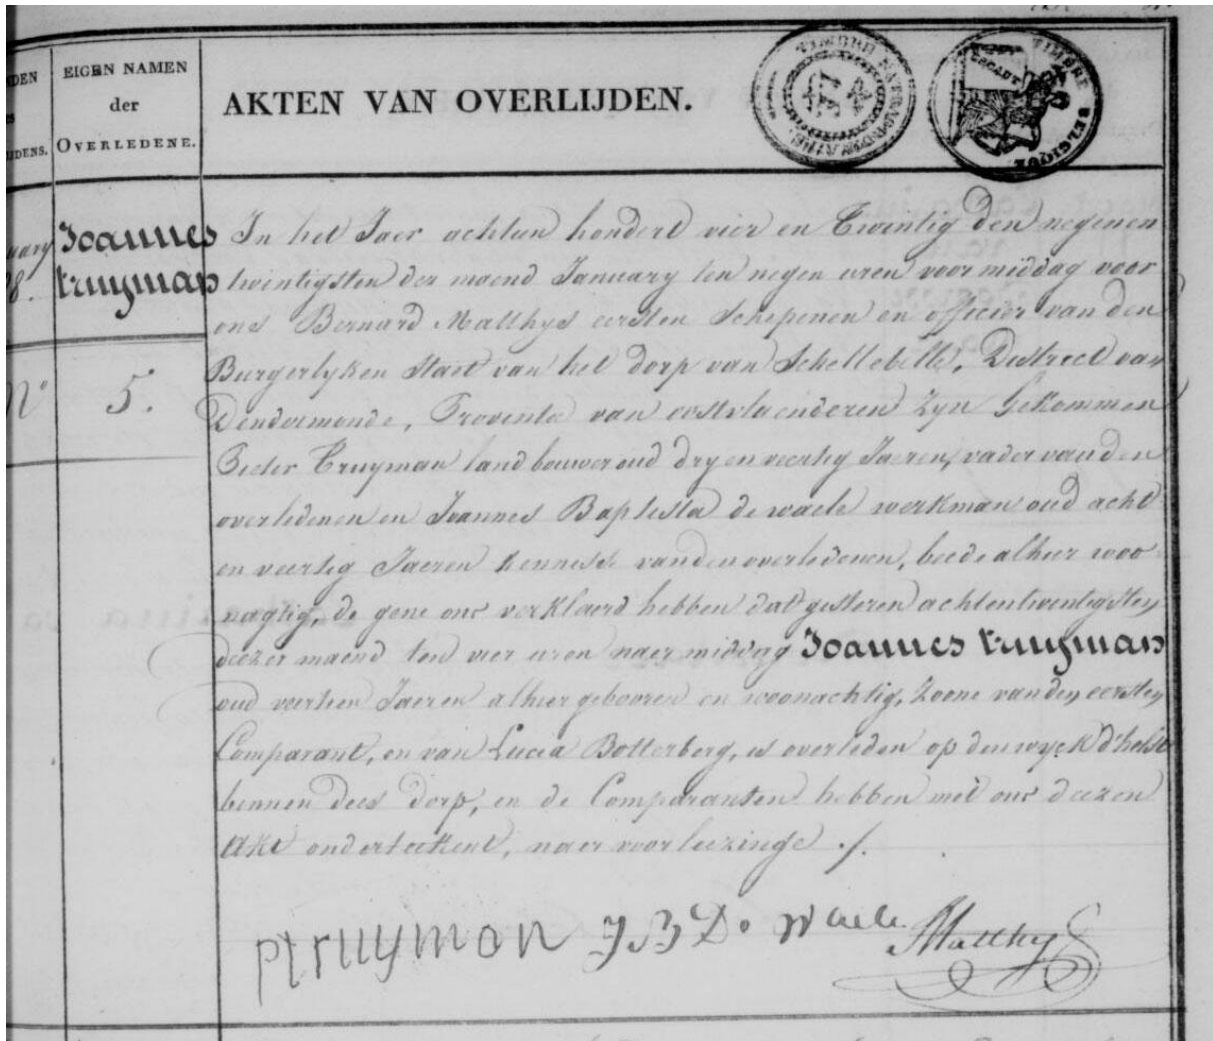 EIGEN NAMEN
der
OVERLEDENE.
AKTEN VAN OVERLIJDEN.
TIMBRE BELGIQUE
ESCAUT
Joannes
truyman
N° 5.
In het Jaer achtien hondert vier en Twintig den negenen
twintigsten der maend January ten negen uren voormiddag voor
ons Bernard Matthys eersten Schepenen en officier van den
Burgerlyken Staet van het dorp van Schellebelle, District van
Dendermonde, Proventie van oostvlaenderen Zyn Gekommen
Pieter Truyman landbouwer oud dry en veertig Jaeren, vader van den
overledenen en Joannes Baptista de waele werkman oud acht
en veertig Jaeren kennisse van den overledenen, beede alhier woo
nagtig, de gene ons verklaerd hebben dat gisteren achtentwintigsten
deezer maend ten vier uren naer middag Joannes truyman
oud veertien Jaeren alhier gebooren en woonachtig, Zoone van den eersten
Comparant, en van Lucia Botterberg, is overleden op den wyck d'helst
binnen dees dorp, en de Comparanten hebben met ons deezen
Akt onderteekent, naer voorleezinge ./.
ptruymon J B De Waele Matthys